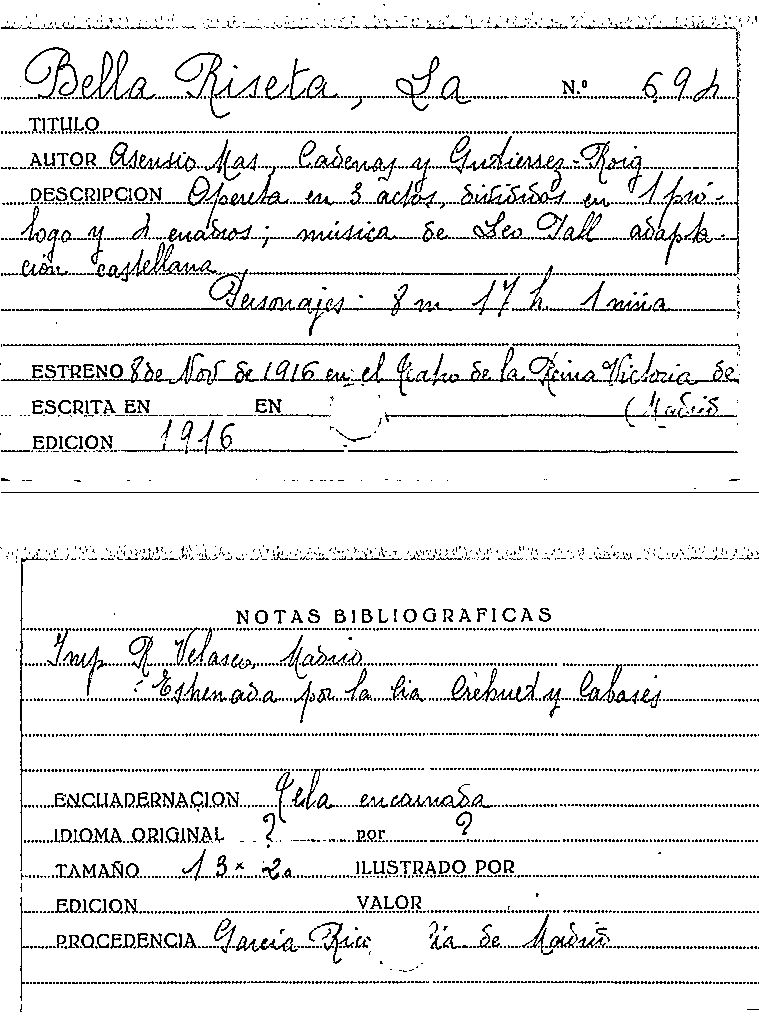 Bella Riseta, La N.º 694
TITULO
AUTOR Asensio Mas, Cadenas y Gutierrez-Roig
DESCRIPCION Opereta en 3 actos, divididos en 1 pró-
logo y 2 cuadros; música de Leo Fall adapta-
ción castellana
Personajes: 8 m 17 h. 1 niña
ESTRENO 8 de Nov de 1916 en el Teatro de la Reina Victoria de
ESCRITA EN EN (Madrid
EDICION 1916
NOTAS BIBLIOGRAFICAS
Imp R Velasco, Madrid
Estrenada por la Cia Crehuet y Cabasés
ENCUADERNACION Tela encarnada
IDIOMA ORIGINAL ? por ?
TAMAÑO 13 x 20 ILUSTRADO POR
EDICION VALOR
PROCEDENCIA García Rico de Madrid